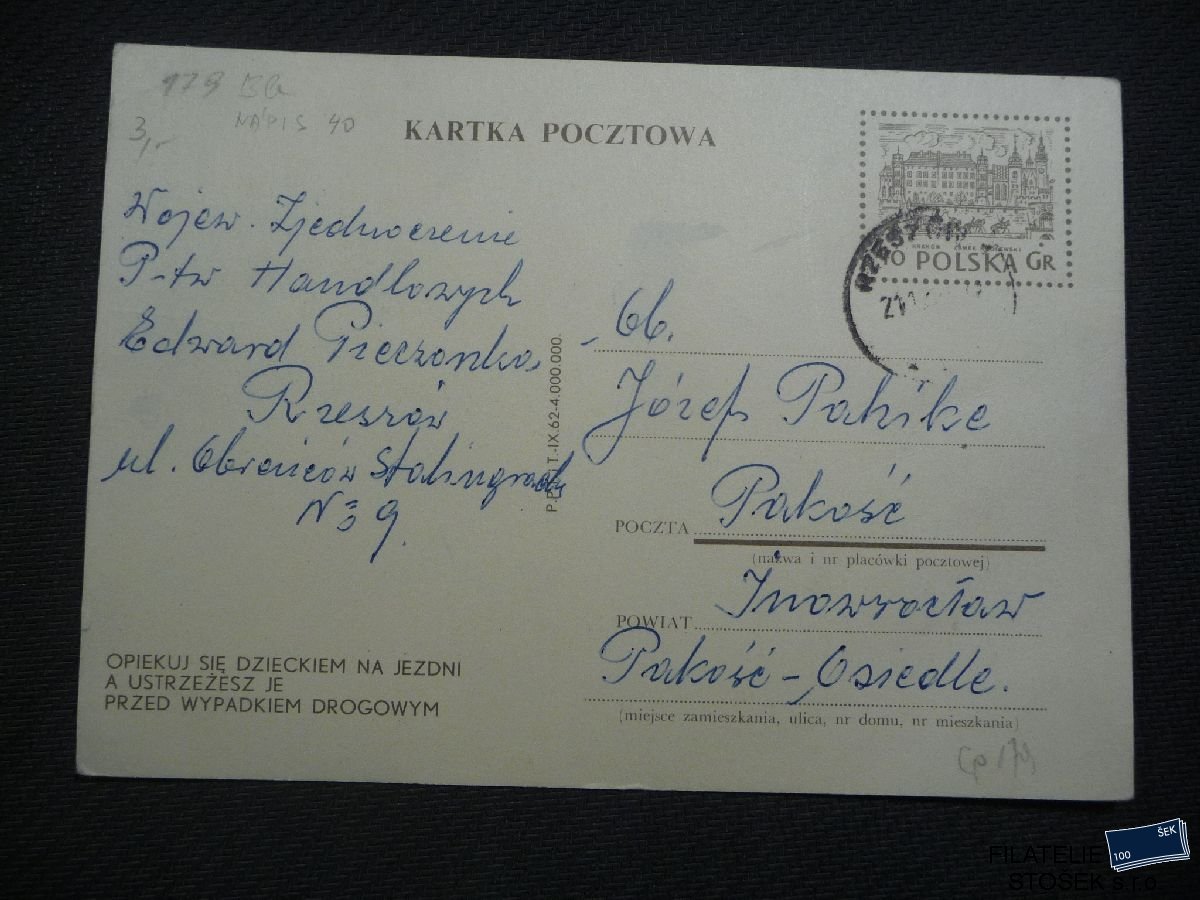 179 Bb
NÁPIS 40
3,-
KARTKA POCZTOWA
KRAKÓW ZAMEK
POLSKA GR
RZESZÓW
Wojew. Zjednoczenie
P-tw Handlowych
Edward Pieczonka
Rzeszów
ul. Obrońców Stalingradu
No 9.
OPIEKUJ SIĘ DZIECKIEM NA JEZDNI
A USTRZEŻESZ JE
PRZED WYPADKIEM DROGOWYM
T.-IX.62-4.000.000.
Ob.
Józef
POCZTA Pakość
(nazwa i nr placówki pocztowej)
POWIAT Inowrocław
Pakość - Osiedle.
(miejsce zamieszkania, ulica, nr domu, nr mieszkania)
Cp 179
100 ŠEK
FILATELIE
STOŠEK s.r.o